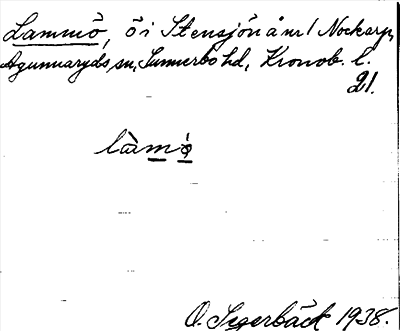 Lammö, ö i Stensjön å nr 1 Nockarp,
Agunnaryds sn, Sunnerbo hd, Kronob. l.
21.
làmö
O. Segerbäck 1938.